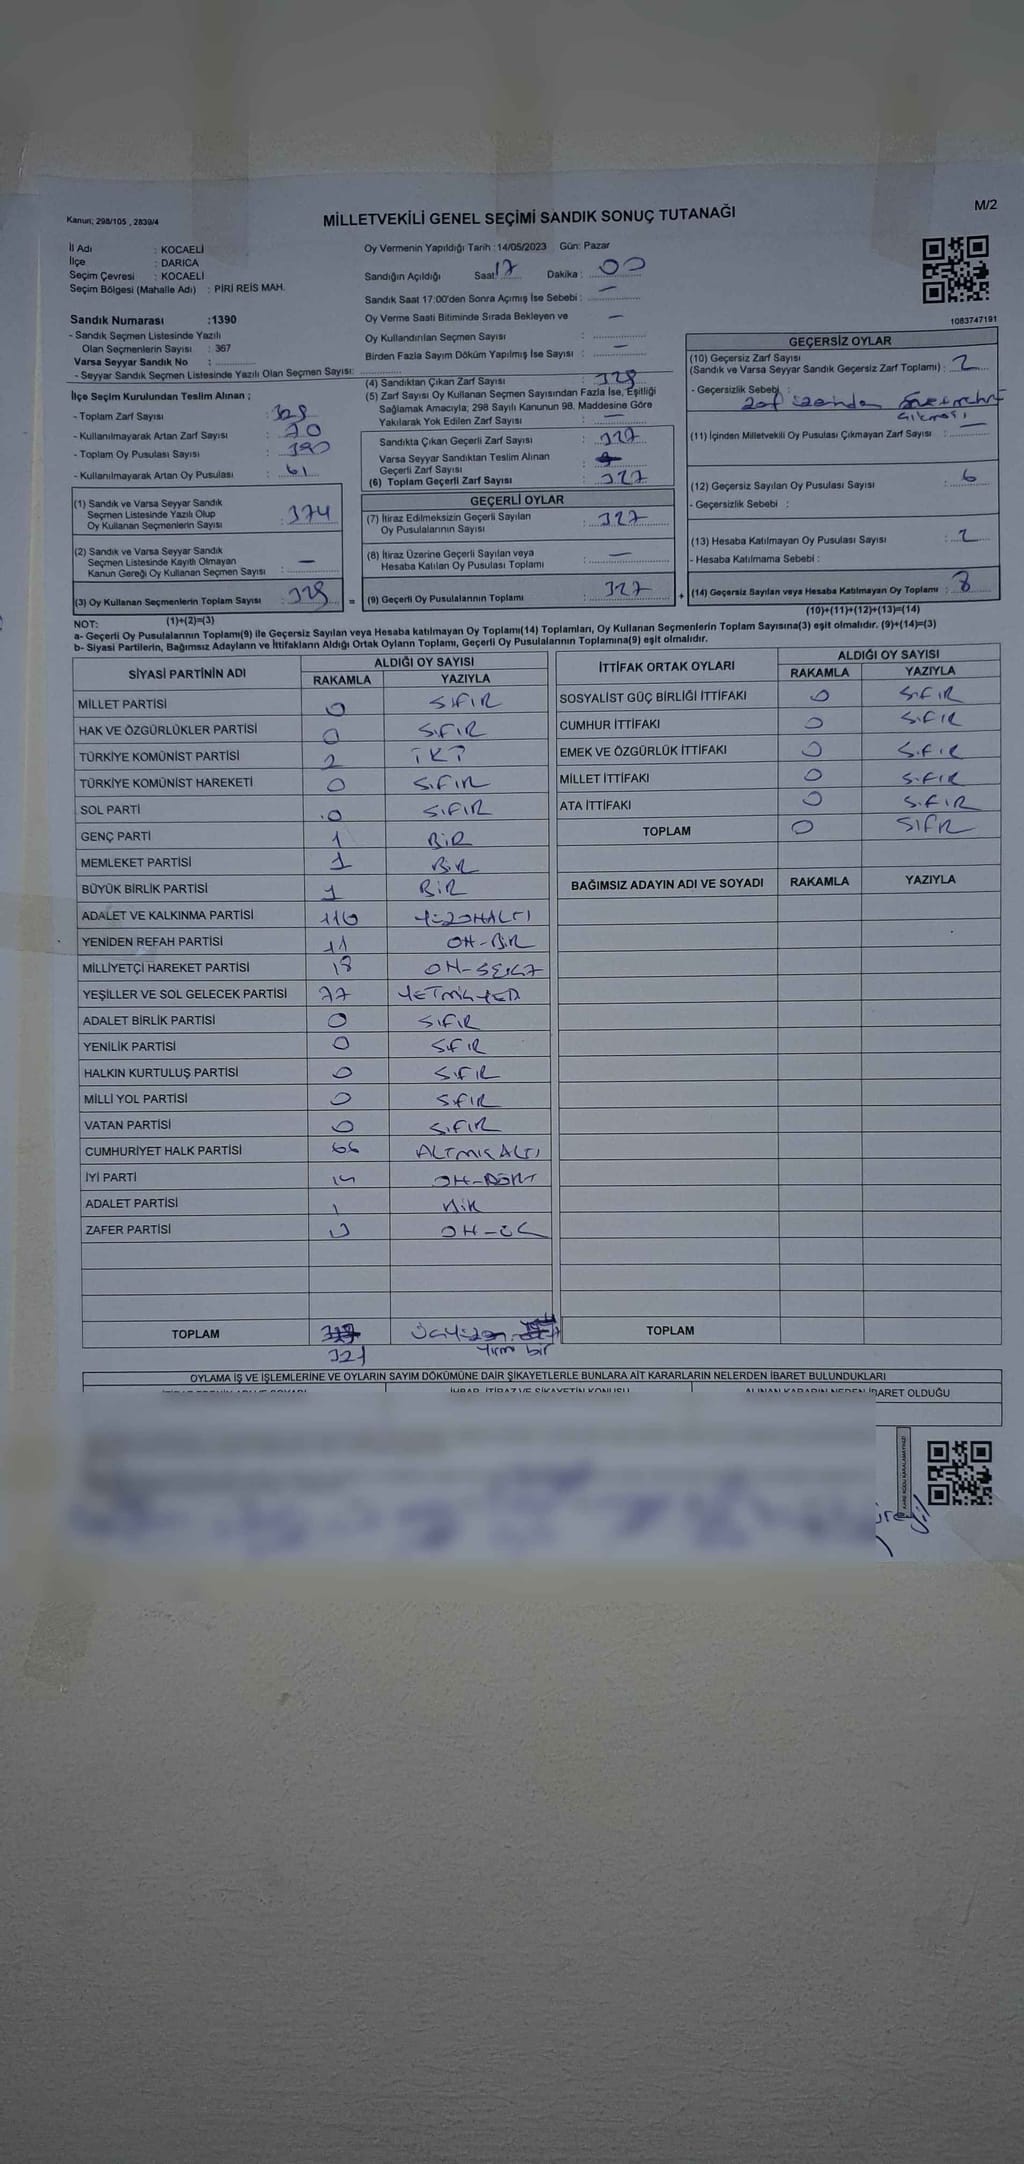 Kanun; 298/105 , 2839/4
MİLLETVEKİLİ GENEL SEÇİMİ SANDIK SONUÇ TUTANAĞI
M/2
İl Adı : KOCAELİ
İlçe : DARICA
Seçim Çevresi : KOCAELİ
Seçim Bölgesi (Mahalle Adı) : PİRİ REİS MAH.
Oy Vermenin Yapıldığı Tarih : 14/05/2023 Gün: Pazar
Sandığın Açıldığı Saat 17 Dakika : 00
Sandık Saat 17:00'den Sonra Açımış İse Sebebi : —
Oy Verme Saati Bitiminde Sırada Bekleyen ve
Oy Kullandırılan Seçmen Sayısı : —
Birden Fazla Sayım Döküm Yapılmış İse Sayısı : —
1083747191
Sandık Numarası :1390
- Sandık Seçmen Listesinde Yazılı
Olan Seçmenlerin Sayısı : 367
Varsa Seyyar Sandık No :
- Seyyar Sandık Seçmen Listesinde Yazılı Olan Seçmen Sayısı:
İlçe Seçim Kurulundan Teslim Alınan ;
- Toplam Zarf Sayısı : 328
- Kullanılmayarak Artan Zarf Sayısı : 70
- Toplam Oy Pusulası Sayısı : 390
- Kullanılmayarak Artan Oy Pusulası : 61
(1) Sandık ve Varsa Seyyar Sandık
Seçmen Listesinde Yazılı Olup
Oy Kullanan Seçmenlerin Sayısı : 374
(2) Sandık ve Varsa Seyyar Sandık
Seçmen Listesinde Kayıtlı Olmayan
Kanun Gereği Oy Kullanan Seçmen Sayısı : —
(3) Oy Kullanan Seçmenlerin Toplam Sayısı : 329
(1)+(2)=(3)
(4) Sandıktan Çıkan Zarf Sayısı : 329
(5) Zarf Sayısı Oy Kullanan Seçmen Sayısından Fazla İse, Eşitliği
Sağlamak Amacıyla; 298 Sayılı Kanunun 98. Maddesine Göre
Yakılarak Yok Edilen Zarf Sayısı : —
Sandıkta Çıkan Geçerli Zarf Sayısı : 327
Varsa Seyyar Sandıktan Teslim Alınan
Geçerli Zarf Sayısı :
(6) Toplam Geçerli Zarf Sayısı : 327
GEÇERLİ OYLAR
(7) İtiraz Edilmeksizin Geçerli Sayılan
Oy Pusulalarının Sayısı : 327
(8) İtiraz Üzerine Geçerli Sayılan veya
Hesaba Katılan Oy Pusulası Toplamı : —
= (9) Geçerli Oy Pusulalarının Toplamı : 327
GEÇERSİZ OYLAR
(10) Geçersiz Zarf Sayısı
(Sandık ve Varsa Seyyar Sandık Geçersiz Zarf Toplamı) : 2
- Geçersizlik Sebebi :
zarf üzerinden
çıkması
(11) İçinden Milletvekili Oy Pusulası Çıkmayan Zarf Sayısı : —
(12) Geçersiz Sayılan Oy Pusulası Sayısı : 6
- Geçersizlik Sebebi :
(13) Hesaba Katılmayan Oy Pusulası Sayısı : 2
- Hesaba Katılmama Sebebi :
+ (14) Geçersiz Sayılan veya Hesaba Katılmayan Oy Toplamı : 8
(10)+(11)+(12)+(13)=(14)
NOT:
a- Geçerli Oy Pusulalarının Toplamı(9) ile Geçersiz Sayılan veya Hesaba katılmayan Oy Toplamı(14) Toplamları, Oy Kullanan Seçmenlerin Toplam Sayısına(3) eşit olmalıdır. (9)+(14)=(3)
b- Siyasi Partilerin, Bağımsız Adayların ve İttifakların Aldığı Ortak Oyların Toplamı, Geçerli Oy Pusulalarının Toplamına(9) eşit olmalıdır.
SİYASİ PARTİNİN ADI ALDIĞI OY SAYISI
RAKAMLA YAZIYLA
MİLLET PARTİSİ 0 SIFIR
HAK VE ÖZGÜRLÜKLER PARTİSİ 0 SIFIR
TÜRKİYE KOMÜNİST PARTİSİ 2 İKİ
TÜRKİYE KOMÜNİST HAREKETİ 0 SIFIR
SOL PARTİ 0 SIFIR
GENÇ PARTİ 1 BİR
MEMLEKET PARTİSİ 1 BİR
BÜYÜK BİRLİK PARTİSİ 1 BİR
ADALET VE KALKINMA PARTİSİ 116 YÜZONALTI
YENİDEN REFAH PARTİSİ 11 ON-BİR
MİLLİYETÇİ HAREKET PARTİSİ 18 ON-SEKİZ
YEŞİLLER VE SOL GELECEK PARTİSİ 77 YETMİŞYEDİ
ADALET BİRLİK PARTİSİ 0 SIFIR
YENİLİK PARTİSİ 0 SIFIR
HALKIN KURTULUŞ PARTİSİ 0 SIFIR
MİLLİ YOL PARTİSİ 0 SIFIR
VATAN PARTİSİ 0 SIFIR
CUMHURİYET HALK PARTİSİ 66 ALTMIŞALTI
İYİ PARTİ 14 ON-DÖRT
ADALET PARTİSİ 1 BİR
ZAFER PARTİSİ 13 ON-ÜÇ
TOPLAM 321 ÜÇYÜZ
Yirmi bir
İTTİFAK ORTAK OYLARI ALDIĞI OY SAYISI
RAKAMLA YAZIYLA
SOSYALİST GÜÇ BİRLİĞİ İTTİFAKI 0 SIFIR
CUMHUR İTTİFAKI 0 SIFIR
EMEK VE ÖZGÜRLÜK İTTİFAKI 0 SIFIR
MİLLET İTTİFAKI 0 SIFIR
ATA İTTİFAKI 0 SIFIR
TOPLAM 0 SIFIR
BAĞIMSIZ ADAYIN ADI VE SOYADI RAKAMLA YAZIYLA
TOPLAM
OYLAMA İŞ VE İŞLEMLERİNE VE OYLARIN SAYIM DÖKÜMÜNE DAİR ŞİKAYETLERLE BUNLARA AİT KARARLARIN NELERDEN İBARET BULUNDUKLARI
İTİRAZ VE ŞİKAYETİN KONUSU
İBARET OLDUĞU
KARE KODU KARALAMAYINIZ!